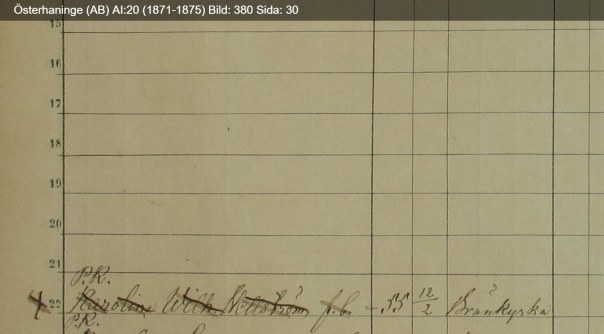 Österhaninge (AB) AI:20 (1871-1875) Bild: 380 Sida: 30
15
16
17
18
19
20
21
P.K.
22 Karolin Wilh f.b. - 55 12/2 Brankyrka
P.K.